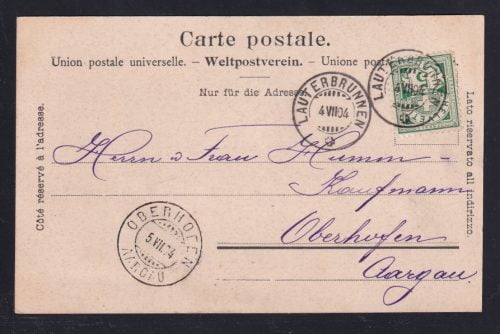 Carte postale.
Union postale universelle. – Weltpostverein. – Unione postale
Nur für die Adresse
LAUTERBRUNNEN
4 VII 04
LAUTERBRUNNEN
4 VII 04
Côté réservé à l'adresse.
Lato riservato all indirizzo.
Herrn & Frau Humm-
Kaufmann
Oberhofen
Aargau.
OBERHOFEN
5.VII.04
AARGAU